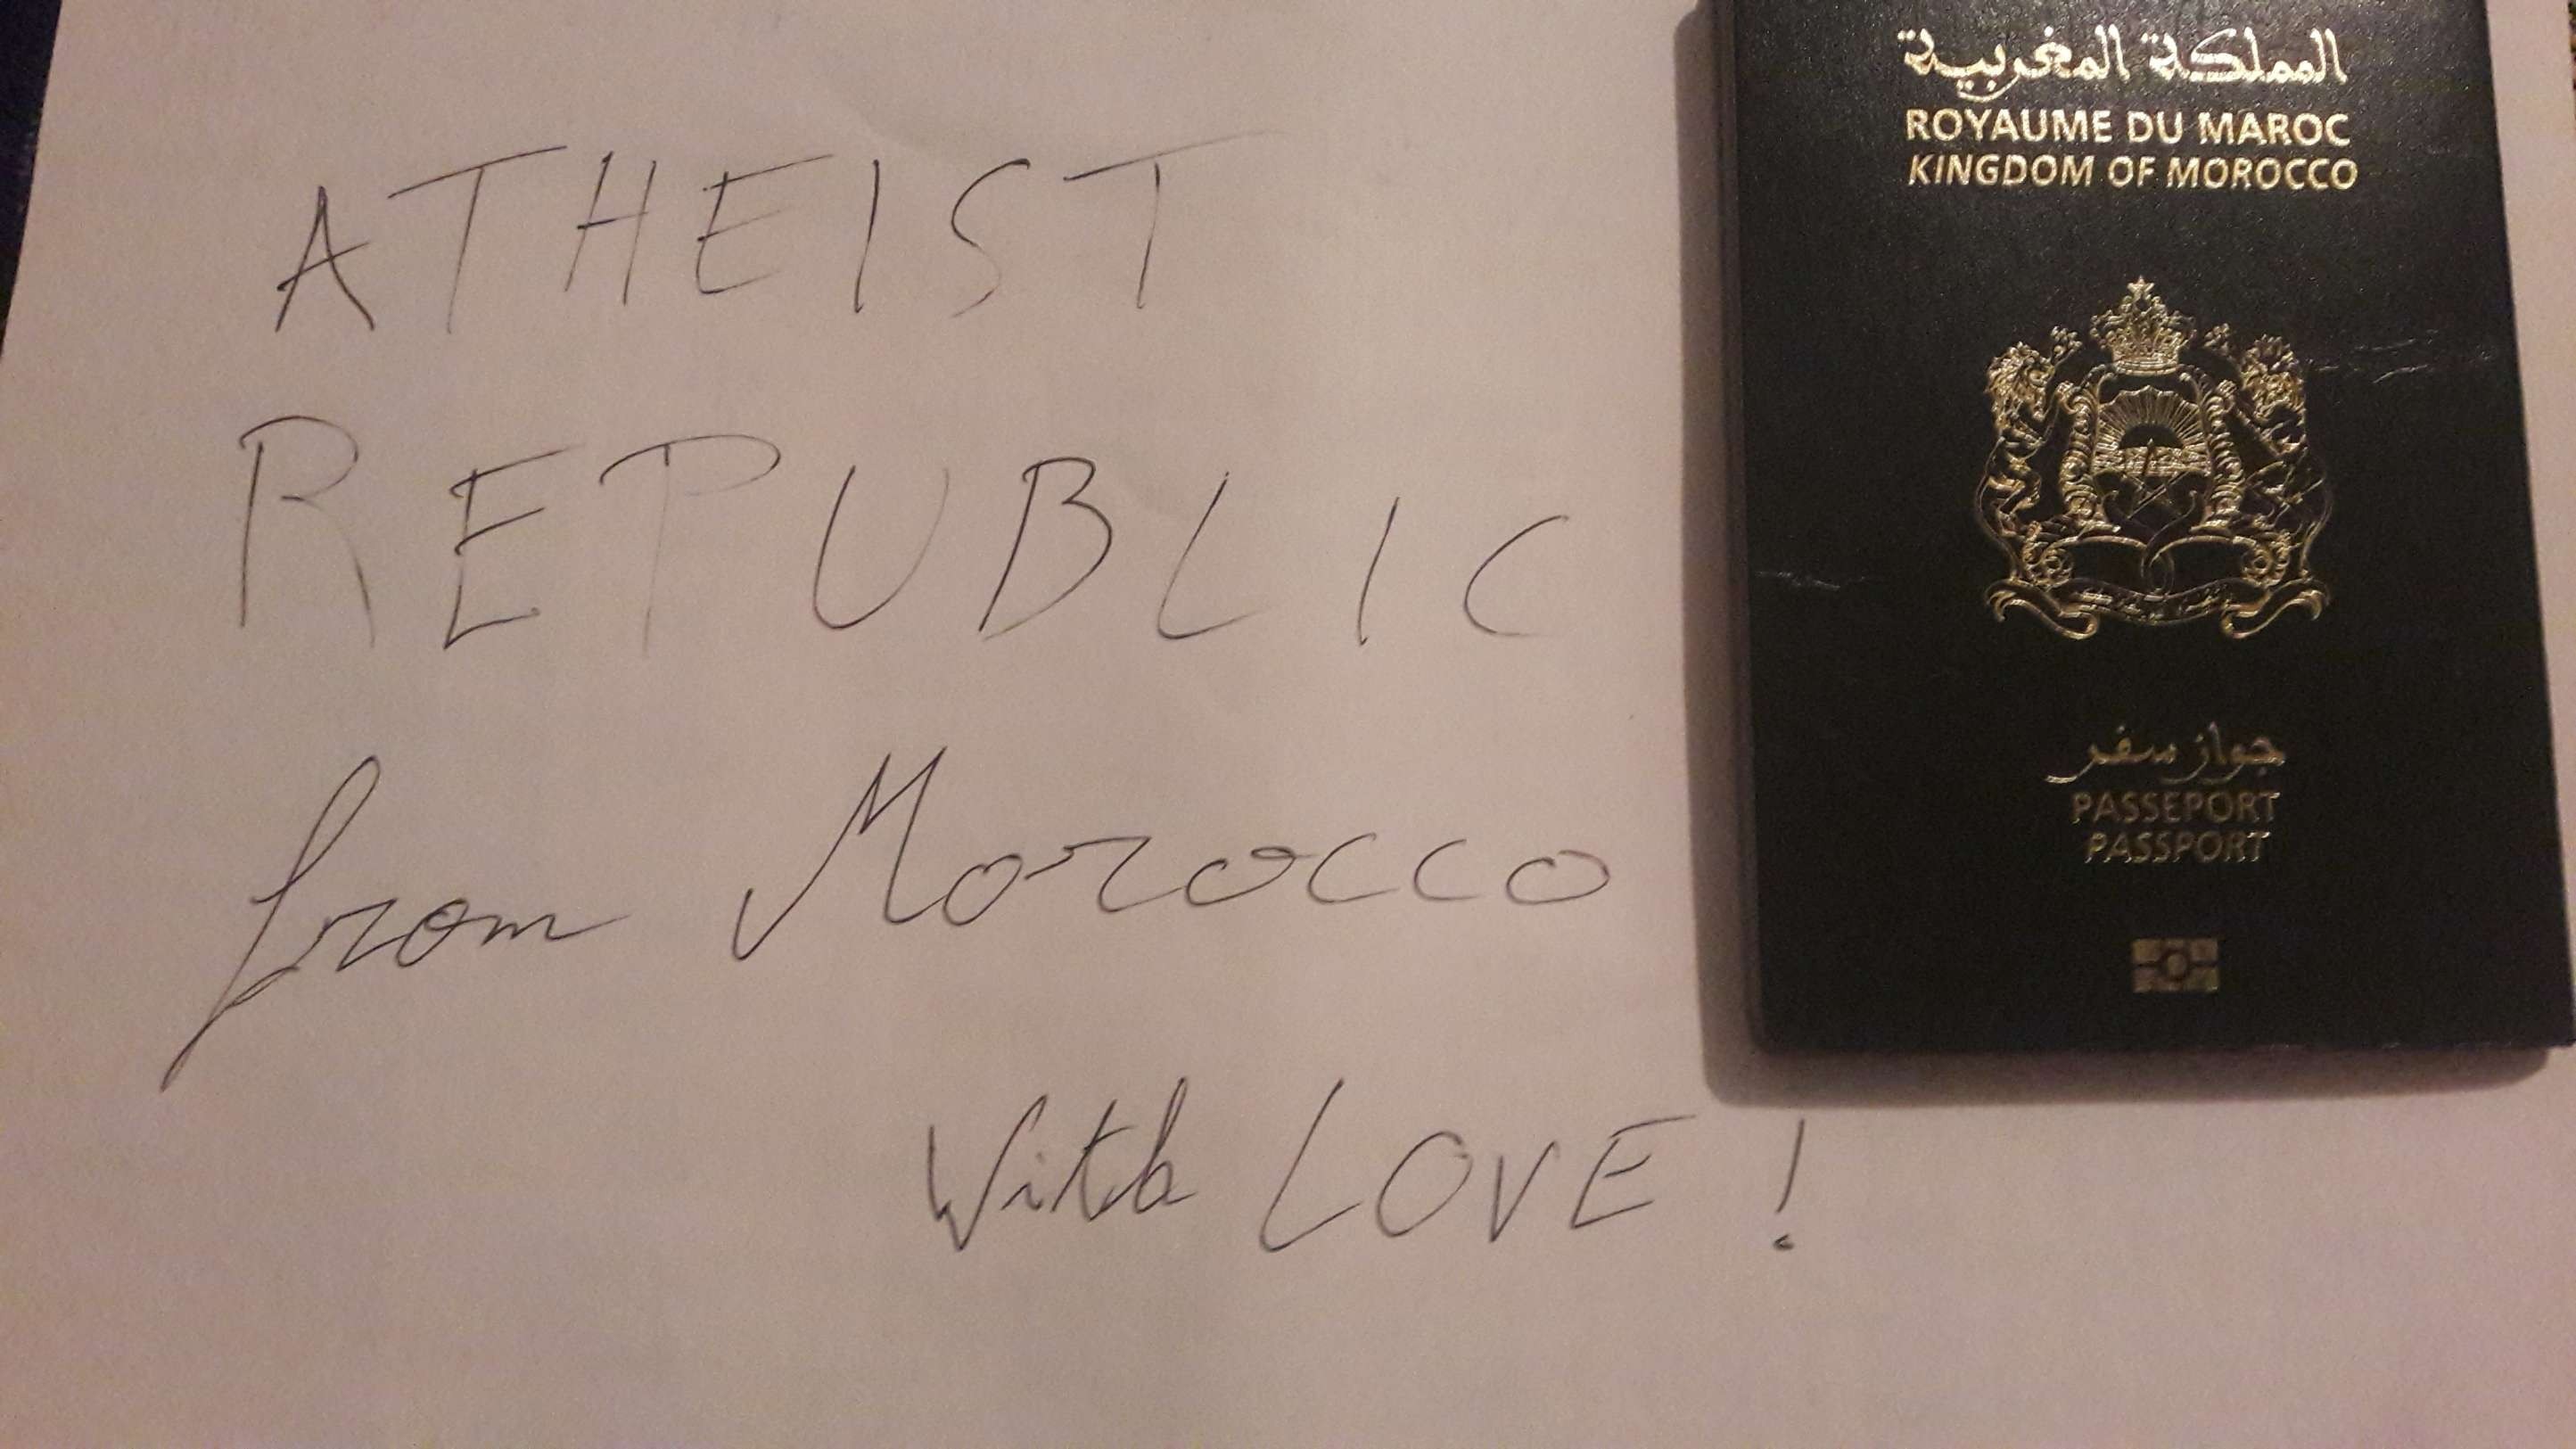 ATHEIST
REPUBLIC
from Morocco
With LOVE!
المملكة المغربية
ROYAUME DU MAROC
KINGDOM OF MOROCCO
جواز سفر
PASSEPORT
PASSPORT